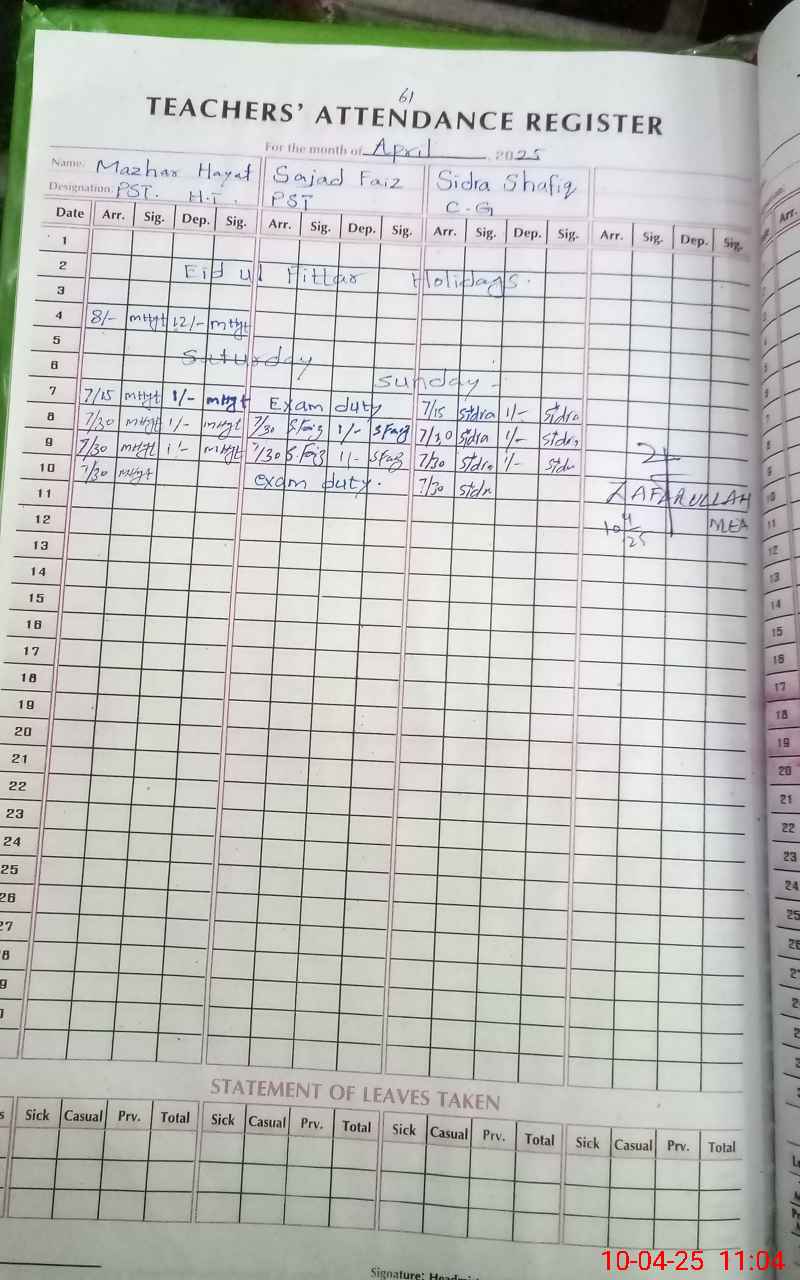 61
TEACHERS' ATTENDANCE REGISTER
For the month of April, 2025
Name. Mazhar Hayat Sajad Faiz Sidra Shafiq
Designation: PST. H.T. PST C.G
Date Arr. Sig. Dep. Sig. Arr. Sig. Dep. Sig. Arr. Sig. Dep. Sig. Arr. Sig. Dep. Sig.
1
2 Eid ul Fittar Holidays.
3
4 8/- mHyt 12/- mHyt
5 Saturday
6 Sunday -
7 7/15 mHyt 1/- mHyt Exam duty 7/15 Sidra 1/- Sidra
8 7/30 mHyt 1/- mHyt 7/30 S.Faiz 1/- SFaiz 7/30 Sidra 1/- Sidra
9 7/30 mHyt 1/- mHyt 7/30 S.Faiz 1/- SFaiz 7/30 Sidra 1/- Sidra
10 7/30 mHyt exam duty. 7/30 Sidra
11 ZAFARULLAH
12 10/4/25 MEA
13
14
15
16
17
18
19
20
21
22
23
24
25
26
27
8
9
STATEMENT OF LEAVES TAKEN
Sick Casual Prv. Total Sick Casual Prv. Total Sick Casual Prv. Total Sick Casual Prv. Total
Signature:
10-04-25 11:04